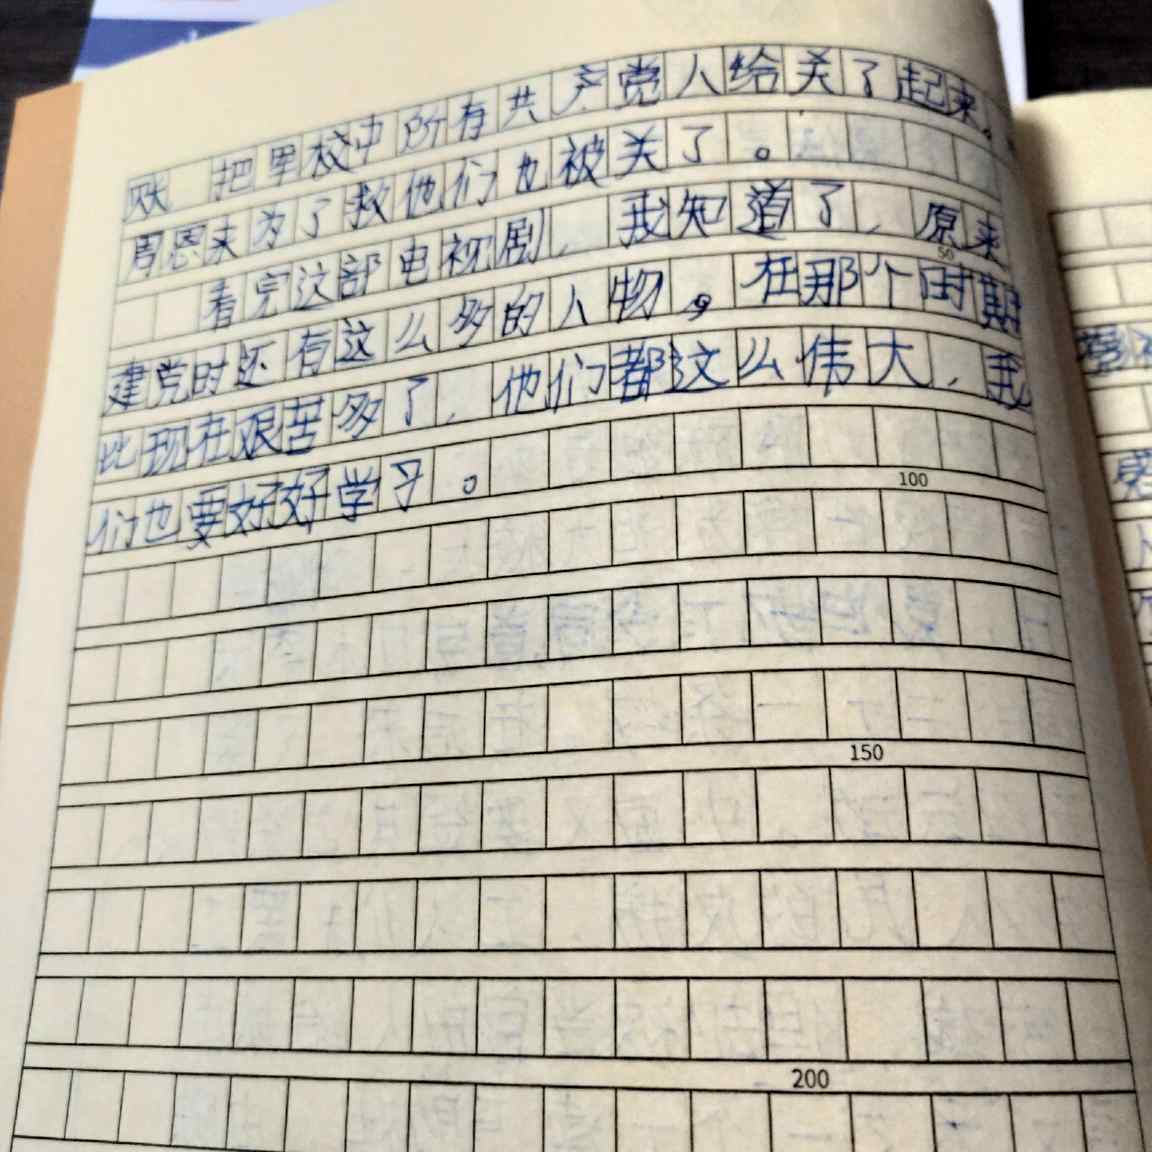 把军校中所有共产党人给关了起来。
周恩来为了救他们也被关了。
看完这部电视剧,我知道了,原来
建党时还有这么多的人物。在那个时期
比现在艰苦多了,他们都这么伟大,我
们也要好好学习。
50
100
150
200